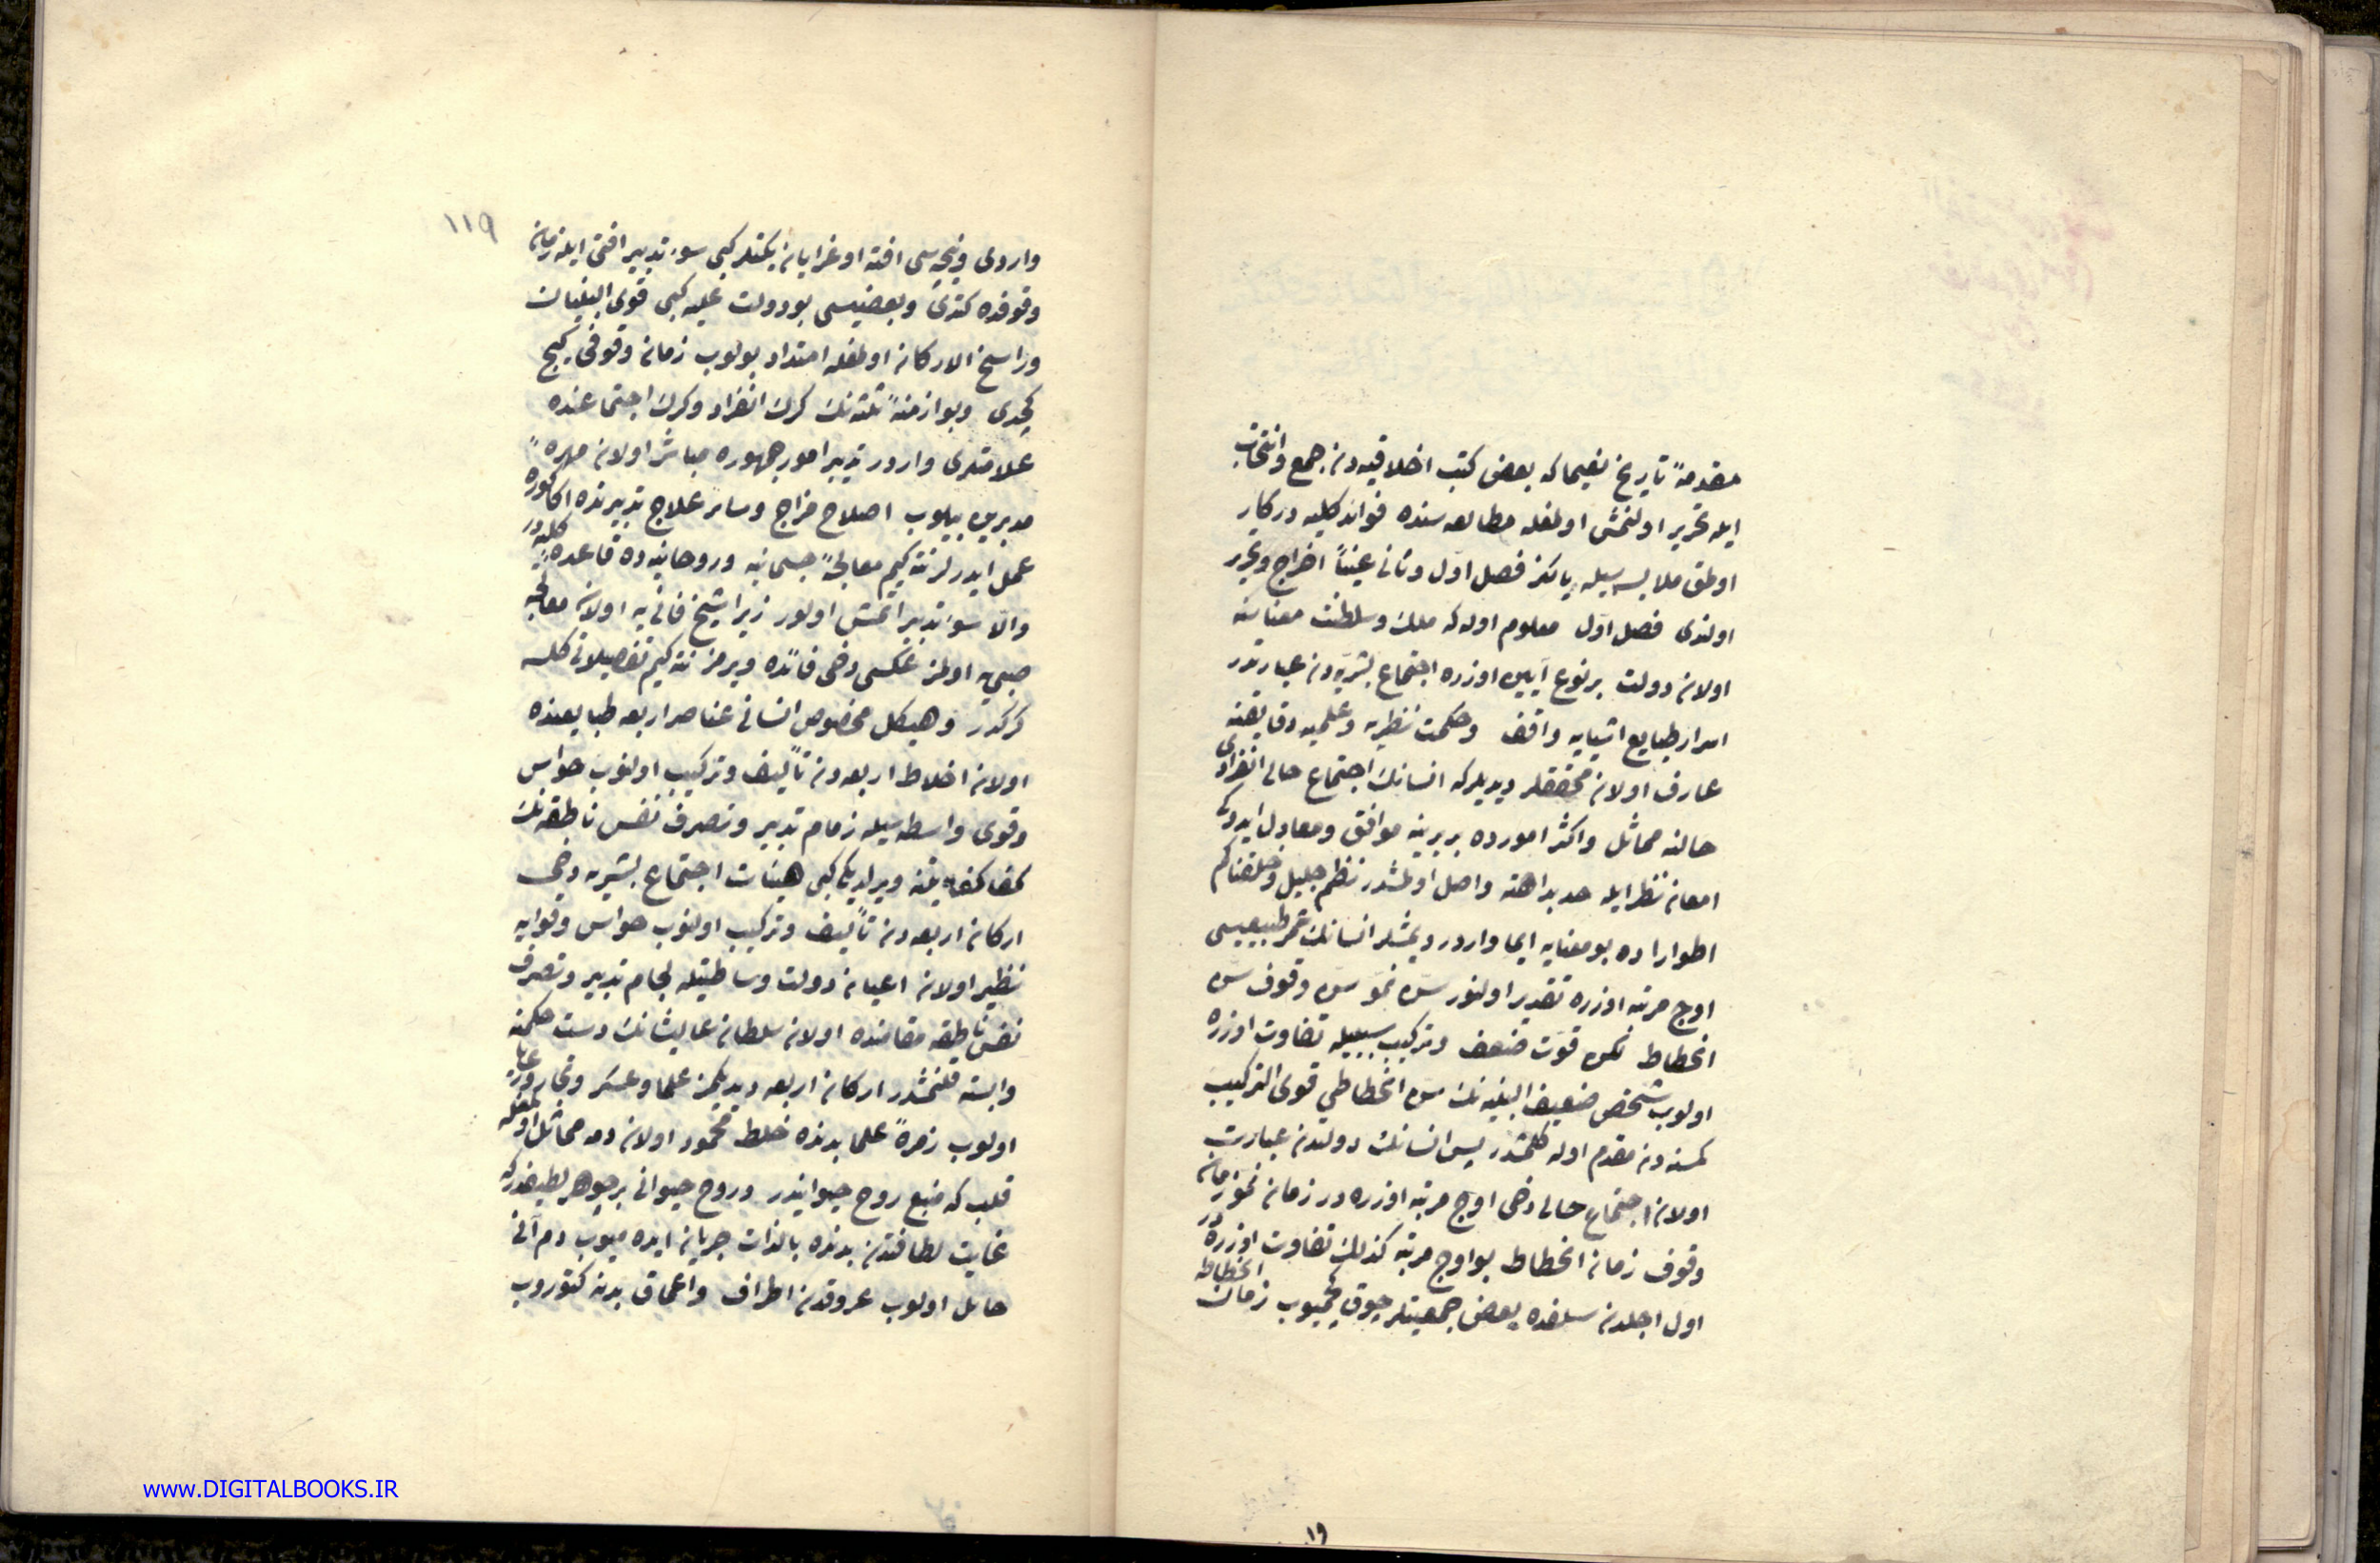 مقدمهٔ تاریخ نعیما که بعض کتب اخلاقیه‌دن جمع وانتخاب
ایله تحریر اولنمش اولمغله مطالعه سنده فوائد کلیه درکار
اولمق ملابسه سیله یالکز فصل اول وثانی عیناً اخراج وتحریر
اولندی فصل اول معلوم اوله که ملک وسلطنت معناسنه
اولان دولت بر نوع آیین اوزره اجتماع بشریه‌دن عبارتدر
اسرار طبایع اشیایه واقف وحکمت نظریه وعلمیه دقایقنه
عارف اولان محققلر دیدیلر که انسانک اجتماع حالی انفرادی
حالنه مماثل واکثر امورده بر برینه موافق ومعادل ایدوکی
امعان نظر ایله حد بداهته واصل اولمشدر نظم جلیل وخلقناکم
اطوارا ده بو معنایه ایما واردر دیمشلر انسانک عمر طبیعیسی
اوچ مرتبه اوزره تقدیر اولنور سن نمو سن وقوف سن
انحطاط لکن قوت ضعف وترکیب سببیله تفاوت اوزره
اولوب شخص ضعیف البنیه نک سن انحطاطی قوی الترکیب
کمسنه دن مقدم اوله کلمشدر پس انسانک دولتدن عبارت
اولان اجتماع حالی دخی اوچ مرتبه اوزره در زمان نمو زمان
وقوف زمان انحطاط بو اوچ مرتبه کذلک تفاوت اوزره در
اول اجلدن سلفده بعض جمعیتلر چوق کچمیوب زمان انحطاطه
١٩
١١٩
واردی ونیجه سی افته اوغرایان یکتلر کبی سوء تدبیر افتی ایله زمان
وقوفده کتدی وبعضیسی بو دولت علیه کبی قوی البنیان
وراسخ الارکان اولمغله امتداد بولوب زمان وقوفی کیج
کچدی وبو ازمنهٔ ثلثه نک کرک انفراد وکرک اجتماعنده
علامتلری واردر تدبیر امور جمهوره مباشر اولان مهرهٔ
مدبرین بیلوب اصلاح مزاج وسائر علاج تدبیرنده اکا کوره
عمل ایدرلر نته کیم معالجهٔ جسمانیه وروحانیه ده قاعدهٔ کلیه در
والا سوء تدبیر اتمش اولور زیرا شیخ فانی یه اولان معالجه
صبی یه اولمز عکسی دخی فائده ویرمز نته کیم تفصیلاتی کلسه
کرکدر وهیکل مخصوص انسانی عناصر اربعه طبایعنده
اولان اخلاط اربعه دن تألیف وترکیب اولنوب حواس
وقوی واسطه سیله زمام تدبیر وتصرف نفس ناطقه نک
کف کفایتنه ویرلدیکی کبی هیئات اجتماع بشریه دخی
ارکان اربعه دن تألیف وترکیب اولنوب حواس وقوایه
نظیر اولان اعیان دولت وساطتیله لجام تدبیر وتصرف
نفس ناطقه مقامنده اولان سلطان عالیشانک دست حکمنه
وابسته قلنمشدر ارکان اربعه دیدیکمز علما وعسکر وتجار ورعایا
اولوب زمرهٔ علما بدنده خلط محمود اولان دمه مماثل اولمغله
قلب که منبع روح حیوانیدر وروح حیوانی بر جوهر لطیفدر که
غایت لطافتدن بدنده بالذات جریان ایده میوب دم آنی
حامل اولوب عروقدن اطراف واعماق بدنه کتوروب
www.DIGITALBOOKS.IR